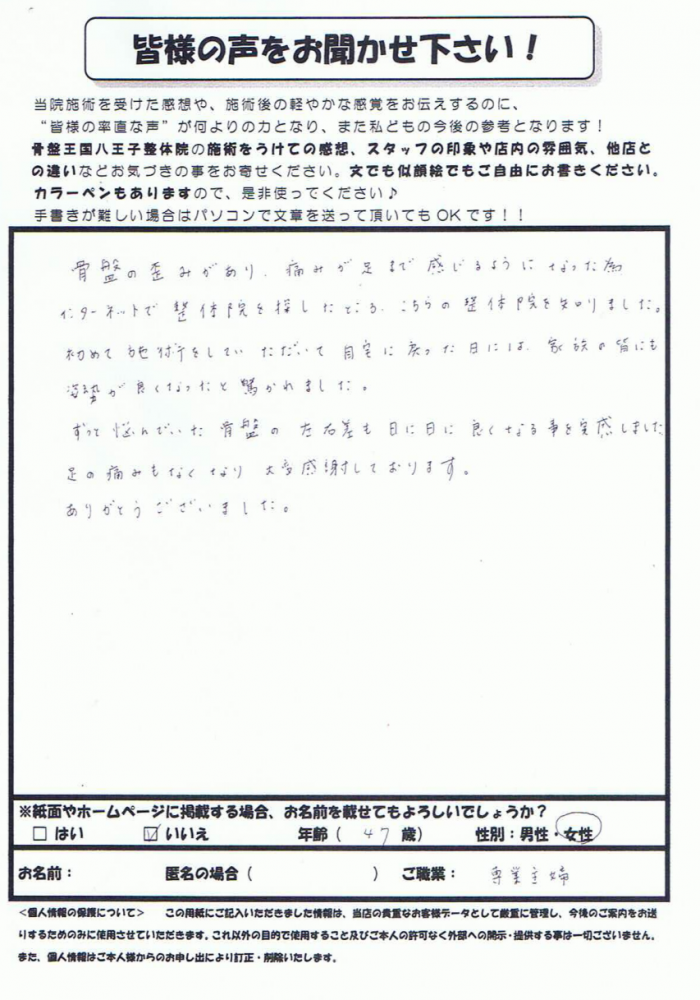 皆様の声をお聞かせ下さい！
当院施術を受けた感想や、施術後の軽やかな感覚をお伝えするのに、
“皆様の率直な声”が何よりの力となり、また私どもの今後の参考となります！
骨盤王国八王子整体院の施術をうけての感想、スタッフの印象や店内の雰囲気、他店と
の違いなどお気づきの事をお寄せください。文でも似顔絵でもご自由にお書きください。
カラーペンもありますので、是非使ってください♪
手書きが難しい場合はパソコンで文章を送って頂いてもOKです！！
骨盤の歪みがあり、痛みが足まで感じるようになった為
インターネットで整体院を探したところ、こちらの整体院を知りました。
初めて施術をしていただいて自宅に戻った日には、家族の皆にも
姿勢が良くなったと驚かれました。
ずっと悩んでいた骨盤の左右差も日に日に良くなる事を実感しました
足の痛みもなくなり大変感謝しております。
ありがとうございました。
※紙面やホームページに掲載する場合、お名前を載せてもよろしいでしょうか？
□はい ☑いいえ 年齢（ 47 歳） 性別：男性・女性
お名前： 匿名の場合（ ） ご職業： 専業主婦
＜個人情報の保護について＞ この用紙にご記入いただきました情報は、当店の貴重なお客様データとして厳重に管理し、今後のご案内をお送
りするためのみに使用させていただきます。これ以外の目的で使用すること及びご本人の許可なく外部への開示・提供する事は一切ございません。
また、個人情報はご本人様からのお申し出により訂正・削除いたします。